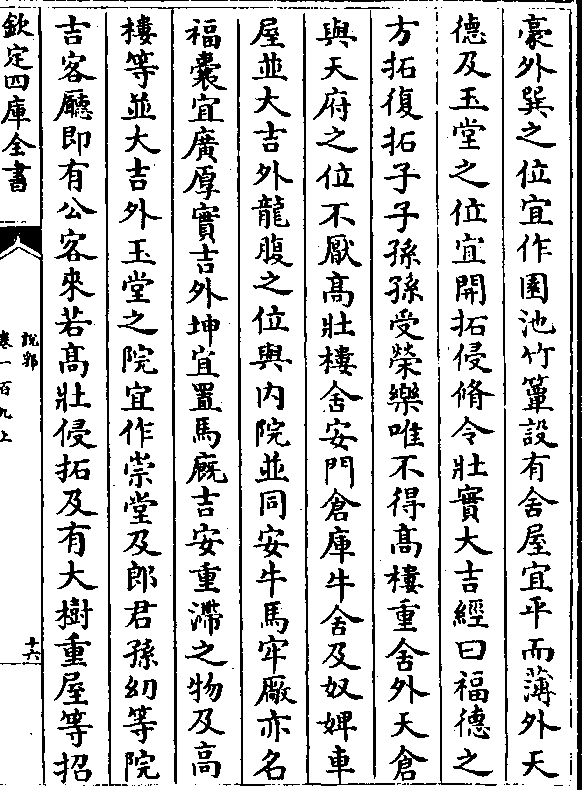 豪外巽之位宜作園池竹簟設有舍屋宜平而薄外天
德及玉堂之位宜開拓侵脩令壯實大吉經曰福德之
方拓復拓子子孫孫受榮樂唯不得髙樓重舍外天倉
與天府之位不厭髙壯樓舍安門倉庫牛舍及奴婢車
屋並大吉外龍腹之位與内院並同安牛馬牢厰亦名
福囊宜廣厚實吉外坤宜置馬廐吉安重滯之物及髙
樓等並大吉外玉堂之院宜作崇堂及郎君孫幼等院
吉客廳即有公客來若髙壯侵拓及有大樹重屋等招
欽定四庫全書
說郛
卷一百九上
十六